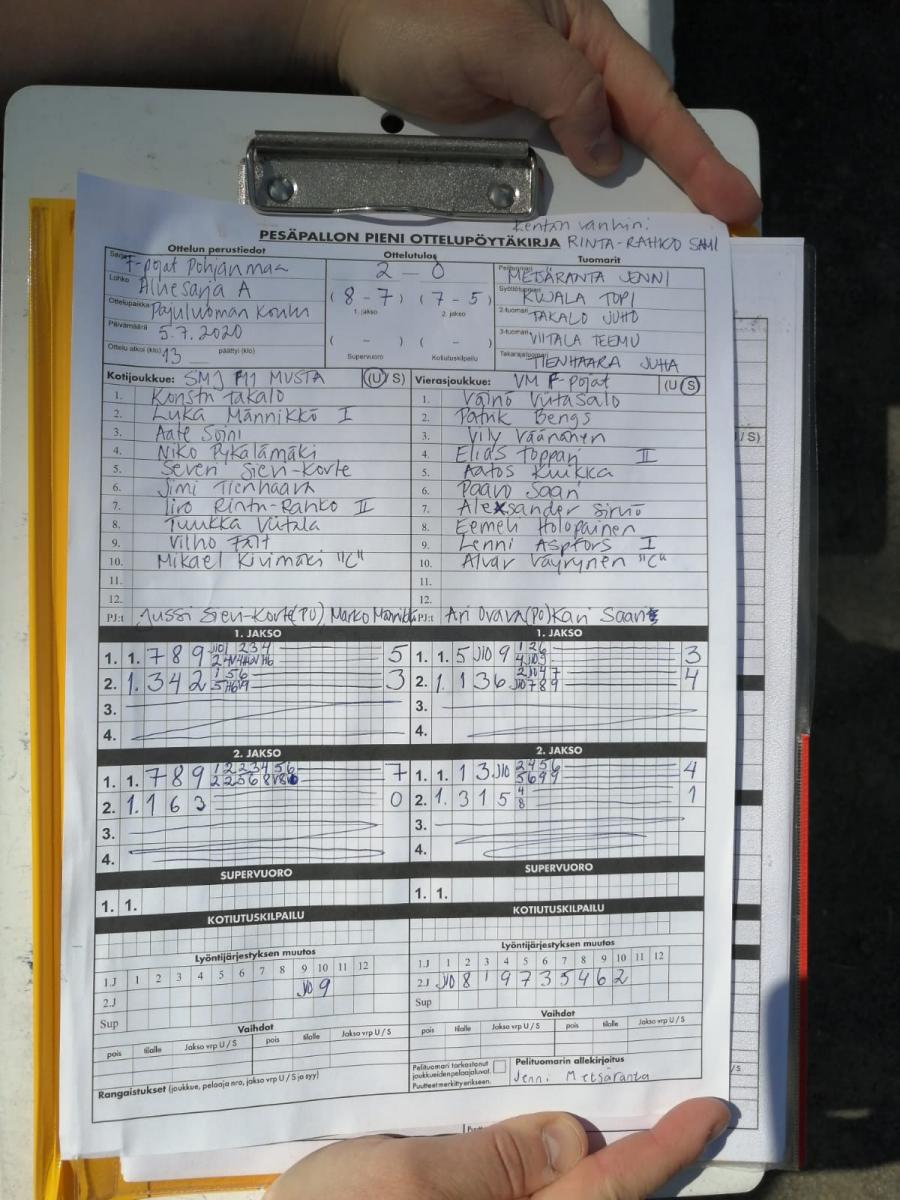 Kentän vanhin:
PESÄPALLON PIENI OTTELUPÖYTÄKIRJA RINTA-RAHKO SAMI
Ottelun perustiedot Ottelutulos Tuomarit
Sarja F-pojat Pohjanmaa 2 - 0 Pelituomari METSÄRANTA JENNI
Lohko Aluesarja A (8-7) (7-5) Syöttötuomari KUJALA TOPI
Ottelupaikka Pajuluoman koulu 1. jakso 2. jakso 2-tuomari TAKALO JUHO
Päivämäärä 5.7.2020 ( - ) ( - ) 3-tuomari VIITALA TEEMU
Ottelu alkoi (klo) 13 päättyi (klo) Supervuoro Kotiutuskilpailu Takarajatuomari TIENHAARA JUHA
Kotijoukkue: SMJ F11 MUSTA (U/S) Vierasjoukkue: VM F-pojat (U/S)
1. Konsta Takalo 1. Väinö Viitasalo
2. Luka Männikkö I 2. Patrik Bengs
3. Aate Soini 3. Vily Väänänen
4. Niko Pykälämäki 4. Elias Toppari II
5. Severi Sien-Korte 5. Aatos Kuikka
6. Jimi Tienhaara 6. Paavo Saari
7. Iiro Rinta-Rahko II 7. Alexsander Sirviö
8. Tuukka Viitala 8. Eemeli Holopainen
9. Vilho Fält 9. Lenni Aspfors I
10. Mikael Kivimäki "C" 10. Alvar Väyrynen "C"
11. 11.
12. 12.
PJ:t Jussi Sieri-Korte (PJ), Marko Männikkö PJ:t Ari Orava (PJ) Kari Saari
1. JAKSO 1. JAKSO
1. 1. 7 8 9 5 1. 1. 5 J10 9 3
2. 1. 3 4 2 3 2. 1. 1 3 6 4
3. 3.
4. 4.
2. JAKSO 2. JAKSO
1. 1. 7 8 9 7 1. 1. 1 3 J10 4
2. 1. 1 6 3 0 2. 1. 3 1 5 4 8 1
3. 3.
4. 4.
SUPERVUORO SUPERVUORO
1. 1. 1. 1.
KOTIUTUSKILPAILU KOTIUTUSKILPAILU
Lyöntijärjestyksen muutos Lyöntijärjestyksen muutos
1.J 1 2 3 4 5 6 7 8 9 10 11 12 1.J 1 2 3 4 5 6 7 8 9 10 11 12
2.J J10 9 2.J J10 8 1 9 7 3 5 4 6 2
Sup Sup
Vaihdot Vaihdot
pois tilalle Jakso vrp U / S pois tilalle Jakso vrp U / S pois tilalle Jakso vrp U / S pois tilalle Jakso vrp U / S
Rangaistukset (joukkue, pelaaja nro, jakso vrp U / S ja syy)
Pelituomari tarkastanut joukkueiden pelaajaluvat. Pelituomarin allekirjoitus
Puutteet merkitty erikseen. Jenni Metsäranta